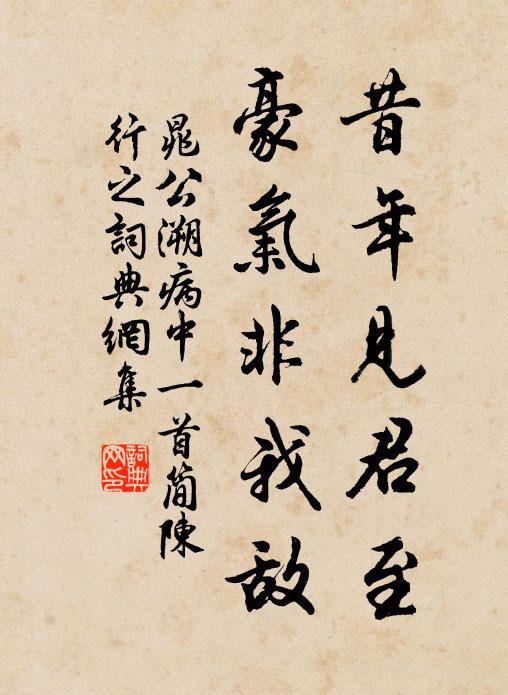 昔年見君至
豪氣非我敵
晁公溯病中一首簡陳
行之詞典網集
詞典網印